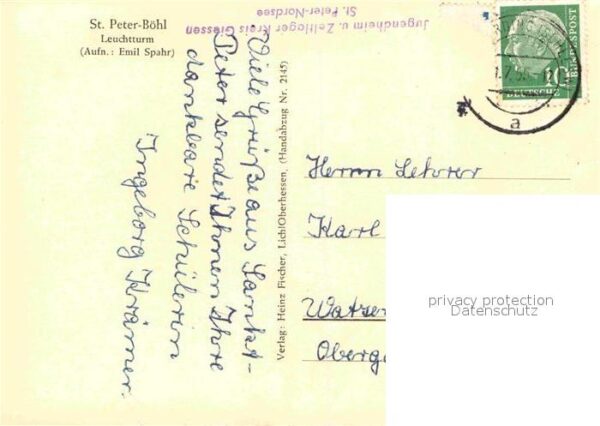 St. Peter-Böhl
Leuchtturm
(Aufn.: Emil Spahr)
Jugendheim u. Zeltlager Kreis Giessen
St. Peter-Nordsee
Viele Grüße aus Sankt-
Peter sendet Ihnen Ihre
dankbare Schülerin
Ingeborg Krämer.
Verlag: Heinz Fischer, Lich/Oberhessen, (Handabzug Nr. 2145)
10
DEUTSCHE
BUNDESPOST
a
Herrn Lehrer
Karl
Watzen
Oberg
privacy protection
Datenschutz